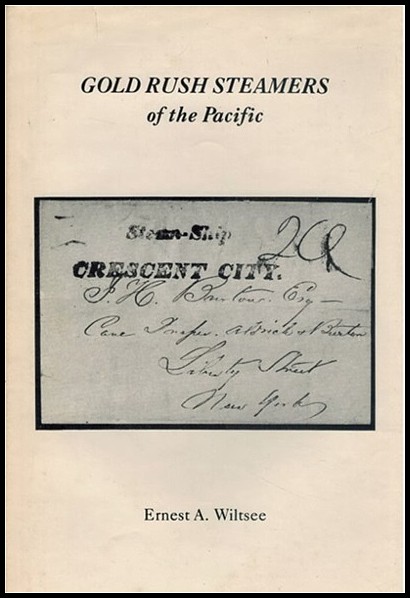 GOLD RUSH STEAMERS
of the Pacific
Steam-Ship 20
CRESCENT CITY.
J. H. Esq
Care Aldrich & Burton
Liberty Street
New York
Ernest A. Wiltsee